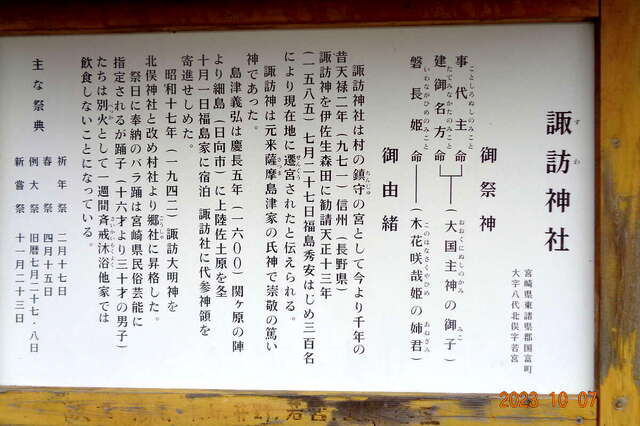 諏訪神社
すわ
宮崎県東諸県郡国富町
大字八代北俣字若宮
御祭神
事代主命
ことしろぬしのみこと
建御名方命
たてみなかたのみこと
(大国主神の御子)
おおくにぬしのかみ みこ
磐長姫命
いわながひめのみこと
(木花咲哉姫の姉君)
このはなさくやひめ あねぎみ
御由緒
諏訪神社は村の鎮守の宮として今より千年の
ちんじゅ
昔天禄二年(九七一)信州(長野県)
諏訪神を伊佐生森田に勧請天正十三年
(一五八五)七月二十七日福島秀安はじめ三百名
により現在地に遷宮されたと伝えられる。
せんぐう
諏訪神は元来薩摩島津家の氏神で崇敬の篤い
神であった。
島津義弘は慶長五年(一六〇〇)関ヶ原の陣
より細島(日向市)に上陸佐土原を圣
十月一日福島家に宿泊 諏訪社に代参神領を
寄進せしめた。
昭和十七年(一九四二)諏訪大明神を
北俣神社と改め村社より郷社に昇格した。
ごうしゃ
祭日に奉納のバラ踊は宮崎県民俗芸能に
指定されるが踊子(十六才より三十才の男子)
たちは別火として一週間斉戒沐浴他家では
飲食しないことになっている。
主な祭典
祈年祭 二月十七日
春祭 四月十五日
例大祭 旧暦七月二十七・八日
新嘗祭 十一月二十三日
2023 10 07